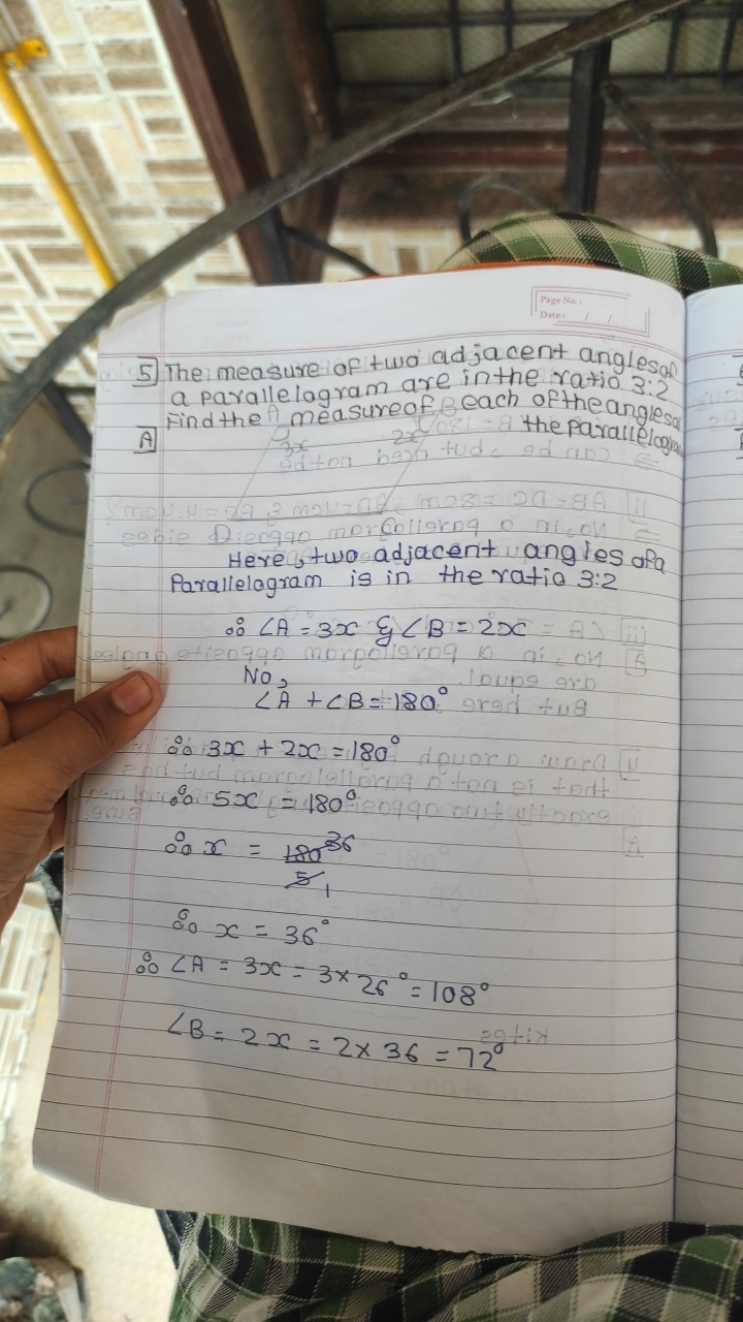 Page No.:
Date: / /
5 The measure of two adjacent angles of
a parallelogram are in the ratio 3:2
Find the measure of each of the angles of
the parallelogram
A
A B
3x 2x
Here, two adjacent angles of a
Parallelogram is in the ratio 3:2
∴ ∠A = 3x & ∠B = 2x
No,
∠A + ∠B = 180°
∴ 3x + 2x = 180°
∴ 5x = 180°
∴ x = 180 36
5 1
∴ x = 36°
∴ ∠A = 3x = 3 × 26° = 108°
∠B = 2x = 2 × 36 = 72°